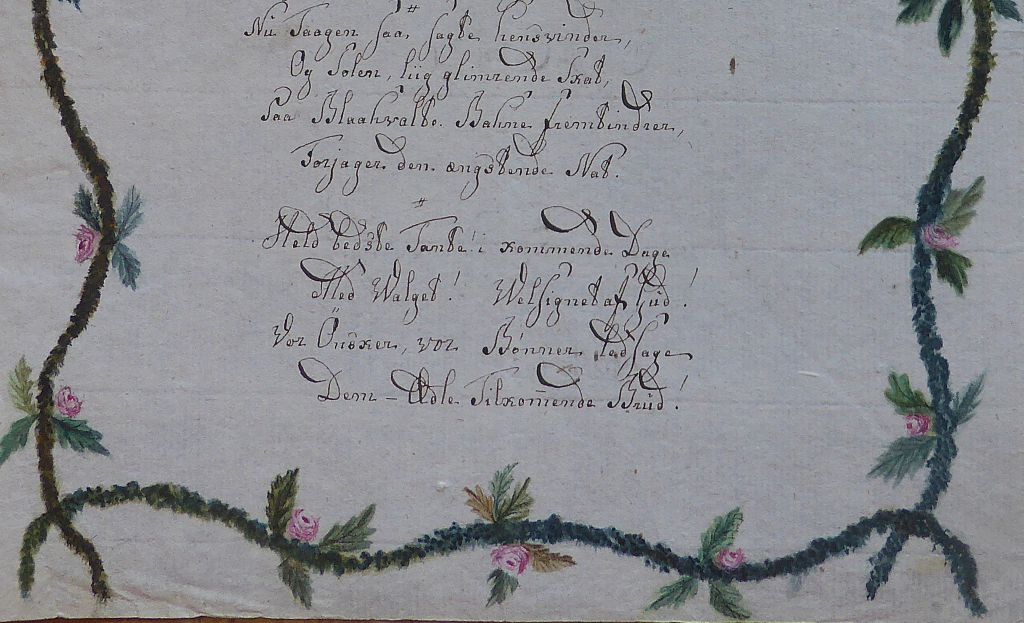 #
Nu Taagen saa sagte hensvinder,
Og Solen, liig glimrende Skat,
Paa Blaahvalte Bahne frembindrer,
Forjager den ængstende Nat.
#
Held bedste Tante! i kommende Dage
Med Walget! Welsignet af Gud!
Vor Önsker, vor Bønner ledsage
Dem – Ædle Tilkom̄ende Brud!